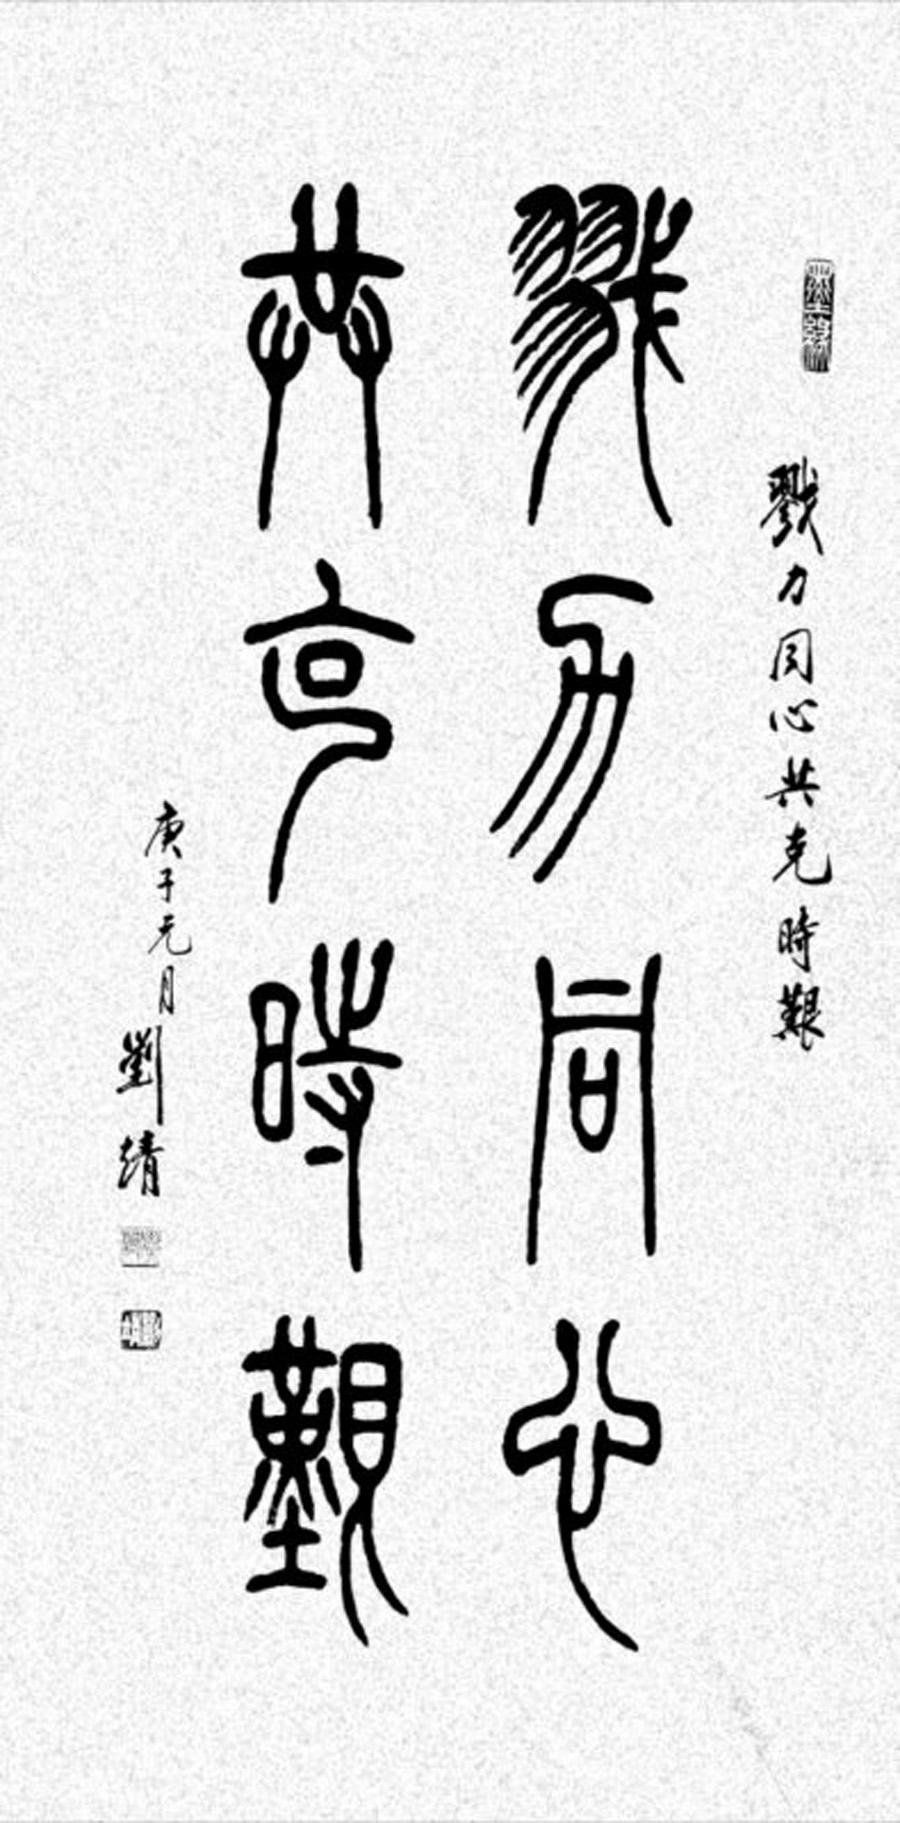 戮力同心共克時艱
戮力同心
共克時艱
庚子元月劉靖